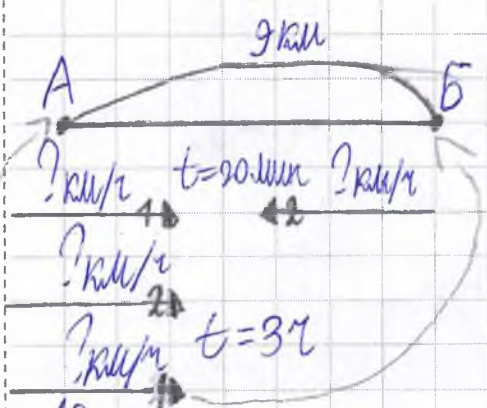 9 км
А Б
?км/ч t=20мин ?км/ч
1 2
?км/ч
2
?км/ч t=3ч
1